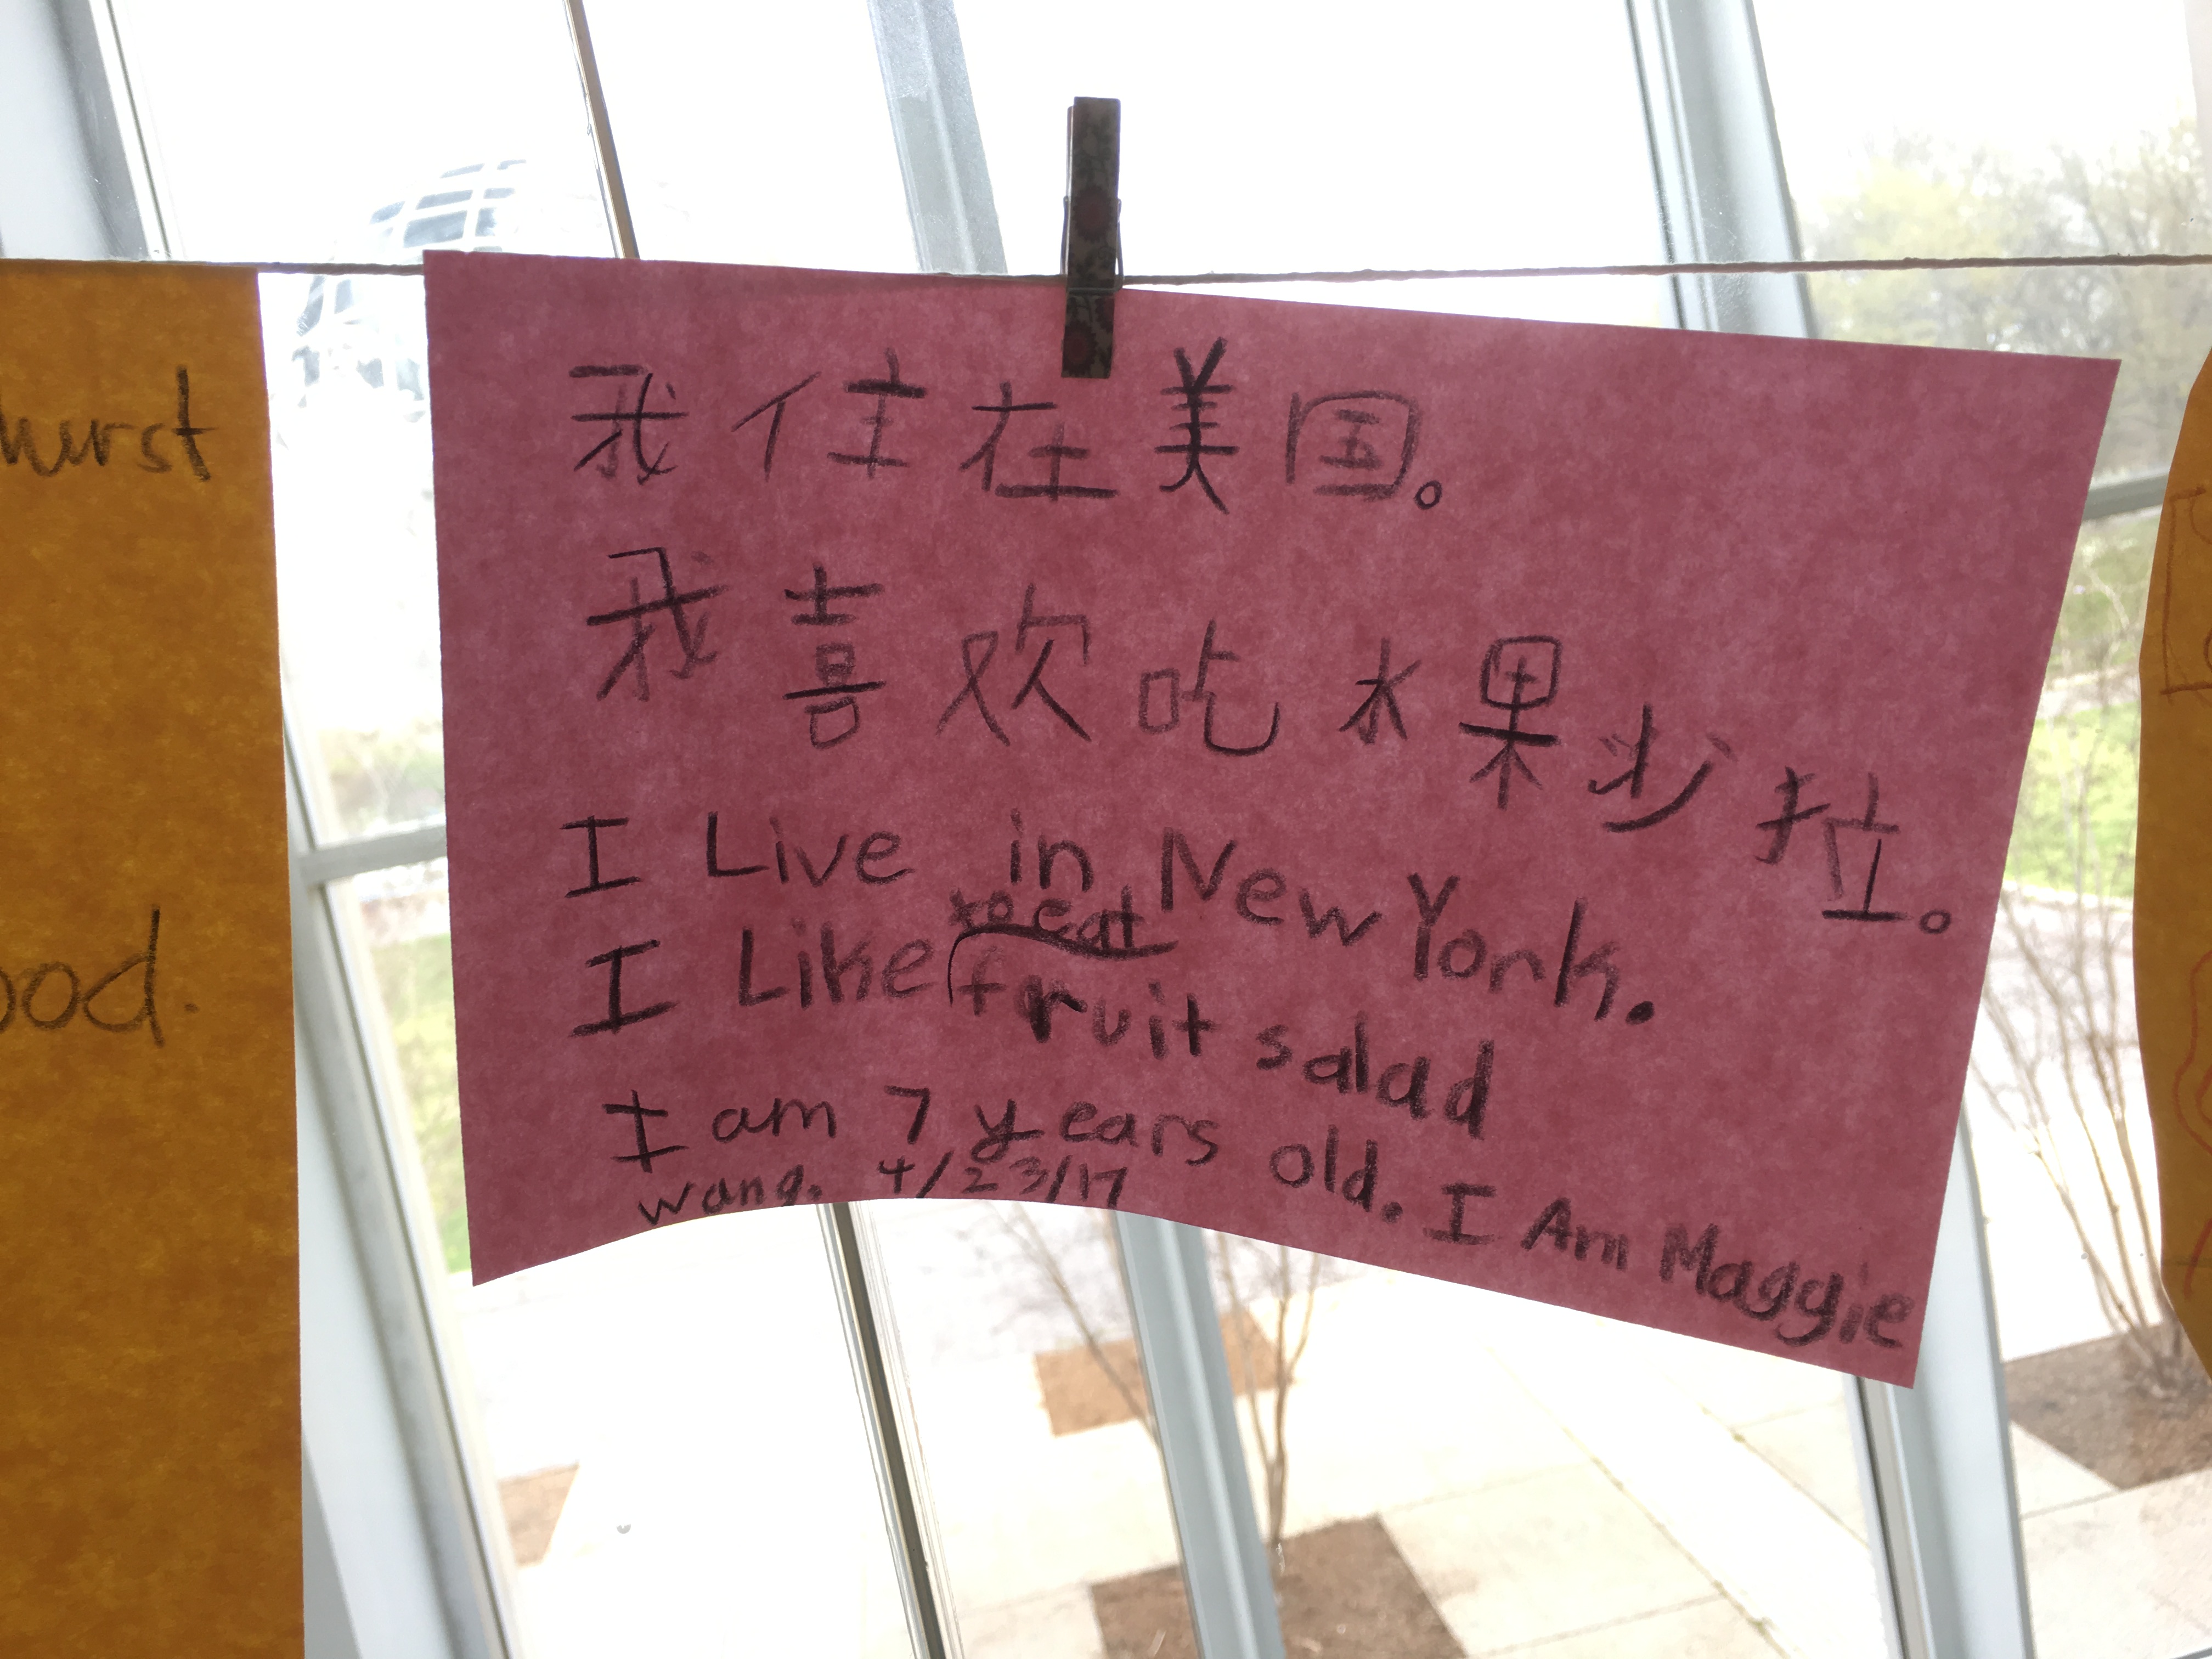 hurst
ood.
我住在美国。
我喜欢吃水果沙拉。
I Live in New York.
I Like to eat fruit salad
I am 7 years old. I Am Maggie
wang. 4/23/17